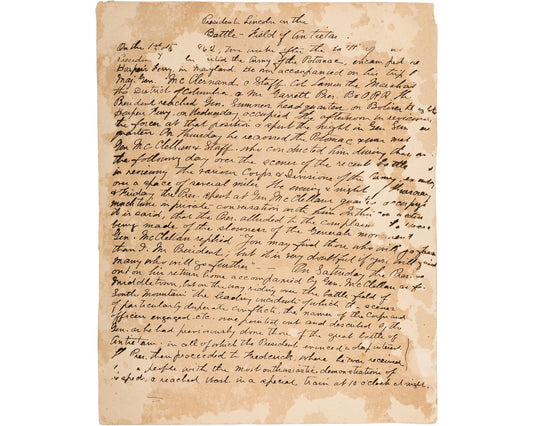 President Lincoln on the
Battle-Field of Antietam.
On the 1st 862, two weeks after the
visited the army of the Potomac, encamped
Harpers Ferry, in Maryland. He was accompanied on his trip
Maj. Gen. McClernand & Staff, Col Lamon the Marshal
the District of Columbia & Mr Garrett Pres. B&O.R.R. The
President reached Gen. Sumner headquarters on Bolivar H
Harpers Ferry, on Wednesday, occupied the afternoon in reviewing
the forces at that position & spent the night in Gen. Sum
quarters On Thursday he recrossed the Potomac & was met
Gen. McClellan & Staff who conducted him during that
the following day over the scenes of the recent battle
in reviewing the various Corps & Divisions of the army
over a space of several miles. The evening & night
& Friday the Pres. spent at Gen. McClellans quarters occupy
much time in private conversation with him. In this
it is said, that the Pres. alluded to the complaints
being made of the slowness of the Generals movements
Gen. McClellan replied "you may find those who will go faster
than I, Mr President, but it is very doubtful if you will
many who will go further" — On Saturday the Pres.
out on his return home accompanied by Gen. McClellan as f
Middletown, but on the way riding over the battle field of
South Mountain the leading incidents of which the scenes
of particularly desperate conflicts, the names of the Corps and
officers engaged etc. were pointed out and described by the
Gen. as he had previously done those of the great battle of
Antietam. in all of which the President evinced a deep interest
Pres. then proceeded to Frederick, where he was received
people with the most enthusiastic demonstrations of
& reached Wash. in a special train at 10 o'clock at night.